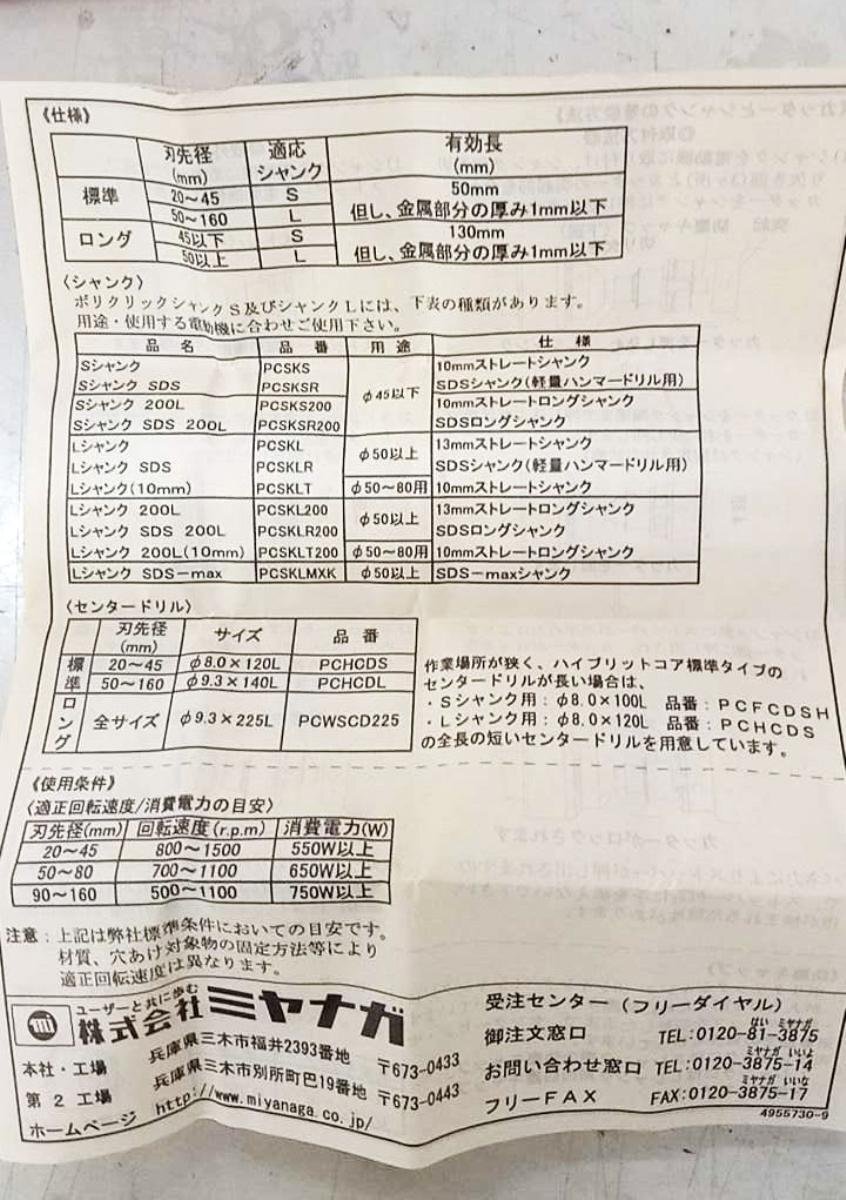 《仕様》
刃先径(mm) 適応シャンク 有効長(mm)
標準 20～45 S 50mm
50～160 L 但し、金属部分の厚み1mm以下
ロング 45以下 S 130mm
50以上 L 但し、金属部分の厚み1mm以下
〈シャンク〉
ポリクリックシャンクS及びシャンクLには、下表の種類があります。
用途・使用する電動機に合わせご使用下さい。
品名 品番 用途 仕様
Sシャンク PCSKS φ45以下 10mmストレートシャンク
Sシャンク SDS PCSKSR SDSシャンク(軽量ハンマードリル用)
Sシャンク 200L PCSKS200 10mmストレートロングシャンク
Sシャンク SDS 200L PCSKSR200 SDSロングシャンク
Lシャンク PCSKL φ50以上 13mmストレートシャンク
Lシャンク SDS PCSKLR SDSシャンク(軽量ハンマードリル用)
Lシャンク(10mm) PCSKLT φ50～80用 10mmストレートシャンク
Lシャンク 200L PCSKL200 φ50以上 13mmストレートロングシャンク
Lシャンク SDS 200L PCSKLR200 SDSロングシャンク
Lシャンク 200L(10mm) PCSKLT200 φ50～80用 10mmストレートロングシャンク
Lシャンク SDS－max PCSKLMXK φ50以上 SDS－maxシャンク
〈センタードリル〉
刃先径(mm) サイズ 品番
標準 20～45 φ8.0×120L PCHCDS
50～160 φ9.3×140L PCHCDL
ロング 全サイズ φ9.3×225L PCWSCD225
作業場所が狭く、ハイブリットコア標準タイプの
センタードリルが長い場合は、
・Sシャンク用：φ8.0×100L 品番：PCFCDSH
・Lシャンク用：φ8.0×120L 品番：PCHCDS
の全長の短いセンタードリルを用意しています。
《使用条件》
〈適正回転速度/消費電力の目安〉
刃先径(mm) 回転速度(r.p.m) 消費電力(W)
20～45 800～1500 550W以上
50～80 700～1100 650W以上
90～160 500～1100 750W以上
注意：上記は弊社標準条件においての目安です。
材質、穴あけ対象物の固定方法等により
適正回転速度は異なります。
mi ユーザーと共に歩む
株式会社ミヤナガ
本社・工場 兵庫県三木市福井2393番地 〒673-0433
第2工場 兵庫県三木市別所町巴19番地 〒673-0443
ホームページ http://www.miyanaga.co.jp/
受注センター(フリーダイヤル)
はい ミヤナガ
御注文窓口 TEL:0120-81-3875
ミヤナガ いいよ
お問い合わせ窓口 TEL:0120-3875-14
ミヤナガ いいな
フリーFAX FAX:0120-3875-17
4955730-9